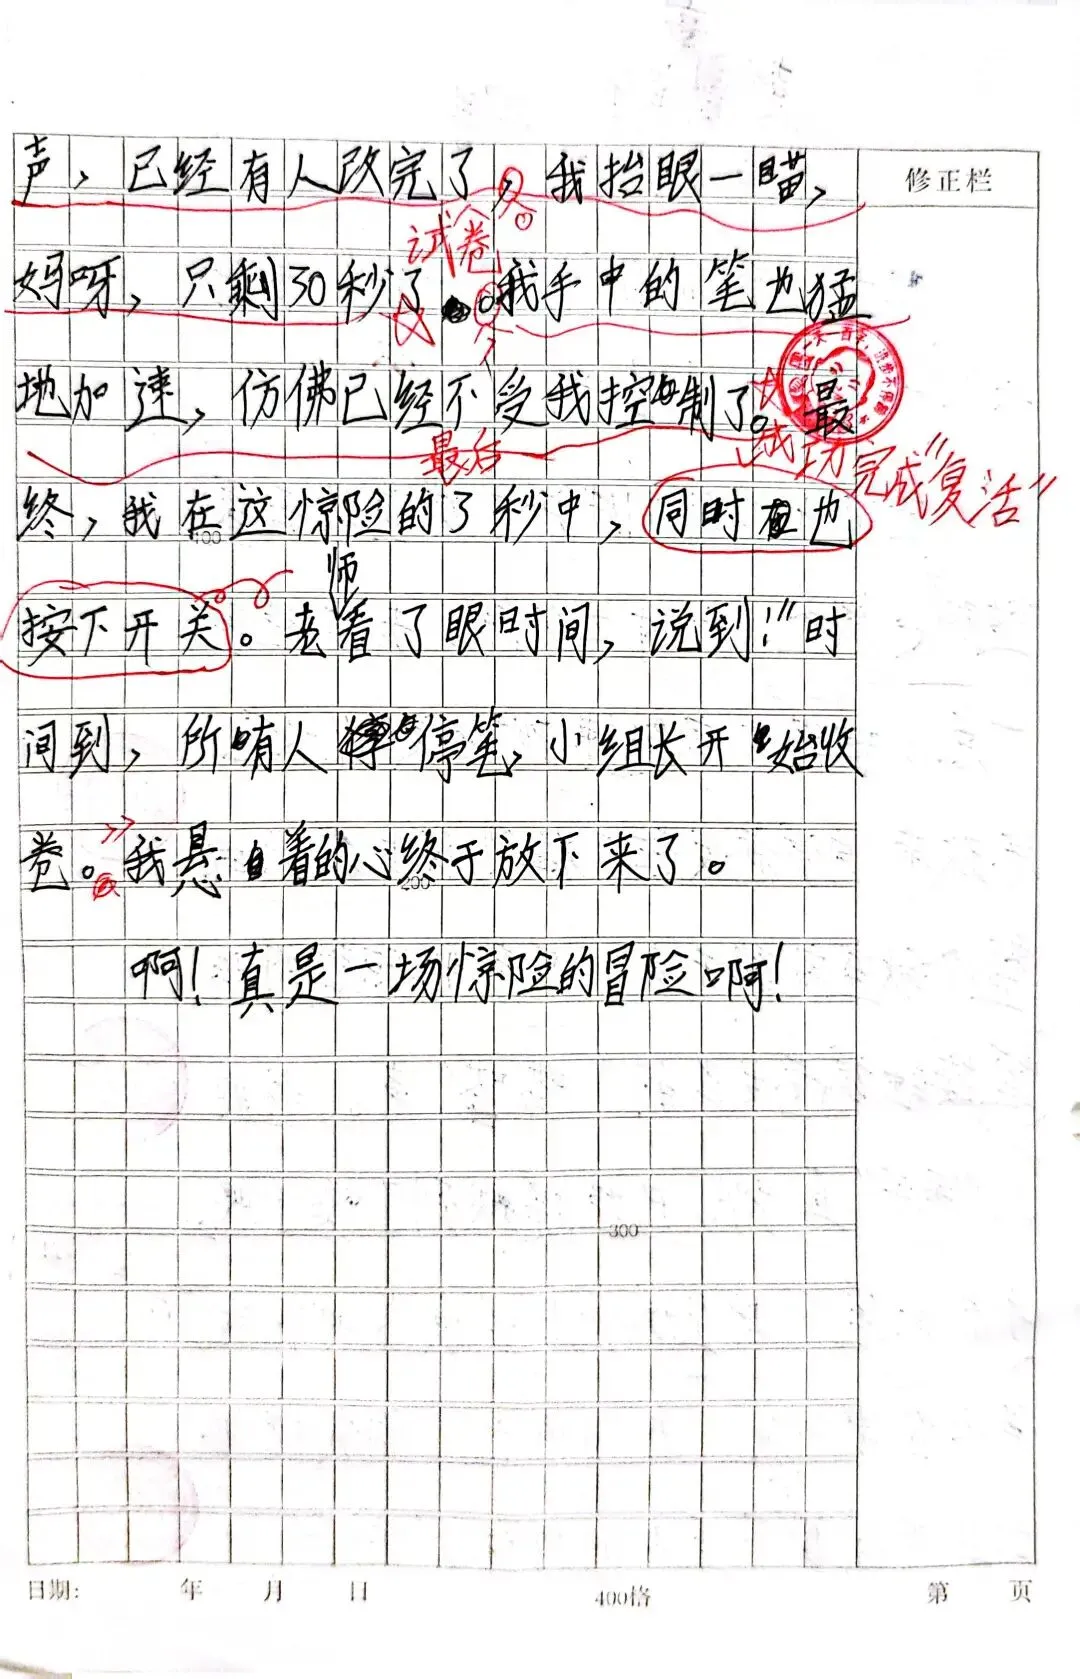 声，已经有人改完了，我抬眼一瞄，
修正栏
试卷
妈呀，只剩30秒了。我手中的笔也猛
地加速，仿佛已经不受我控制了。最
最后
成功完成“复活”
终，我在这惊险的了秒中，同时也
100
师
按下开关。老看了眼时间，说到！“时
间到，所有人停笔，小组长开始收
卷。”我悬着的心终于放下来了。
200
啊！真是一场惊险的冒险啊！
300
日期： 年 月 日 400格 第 页